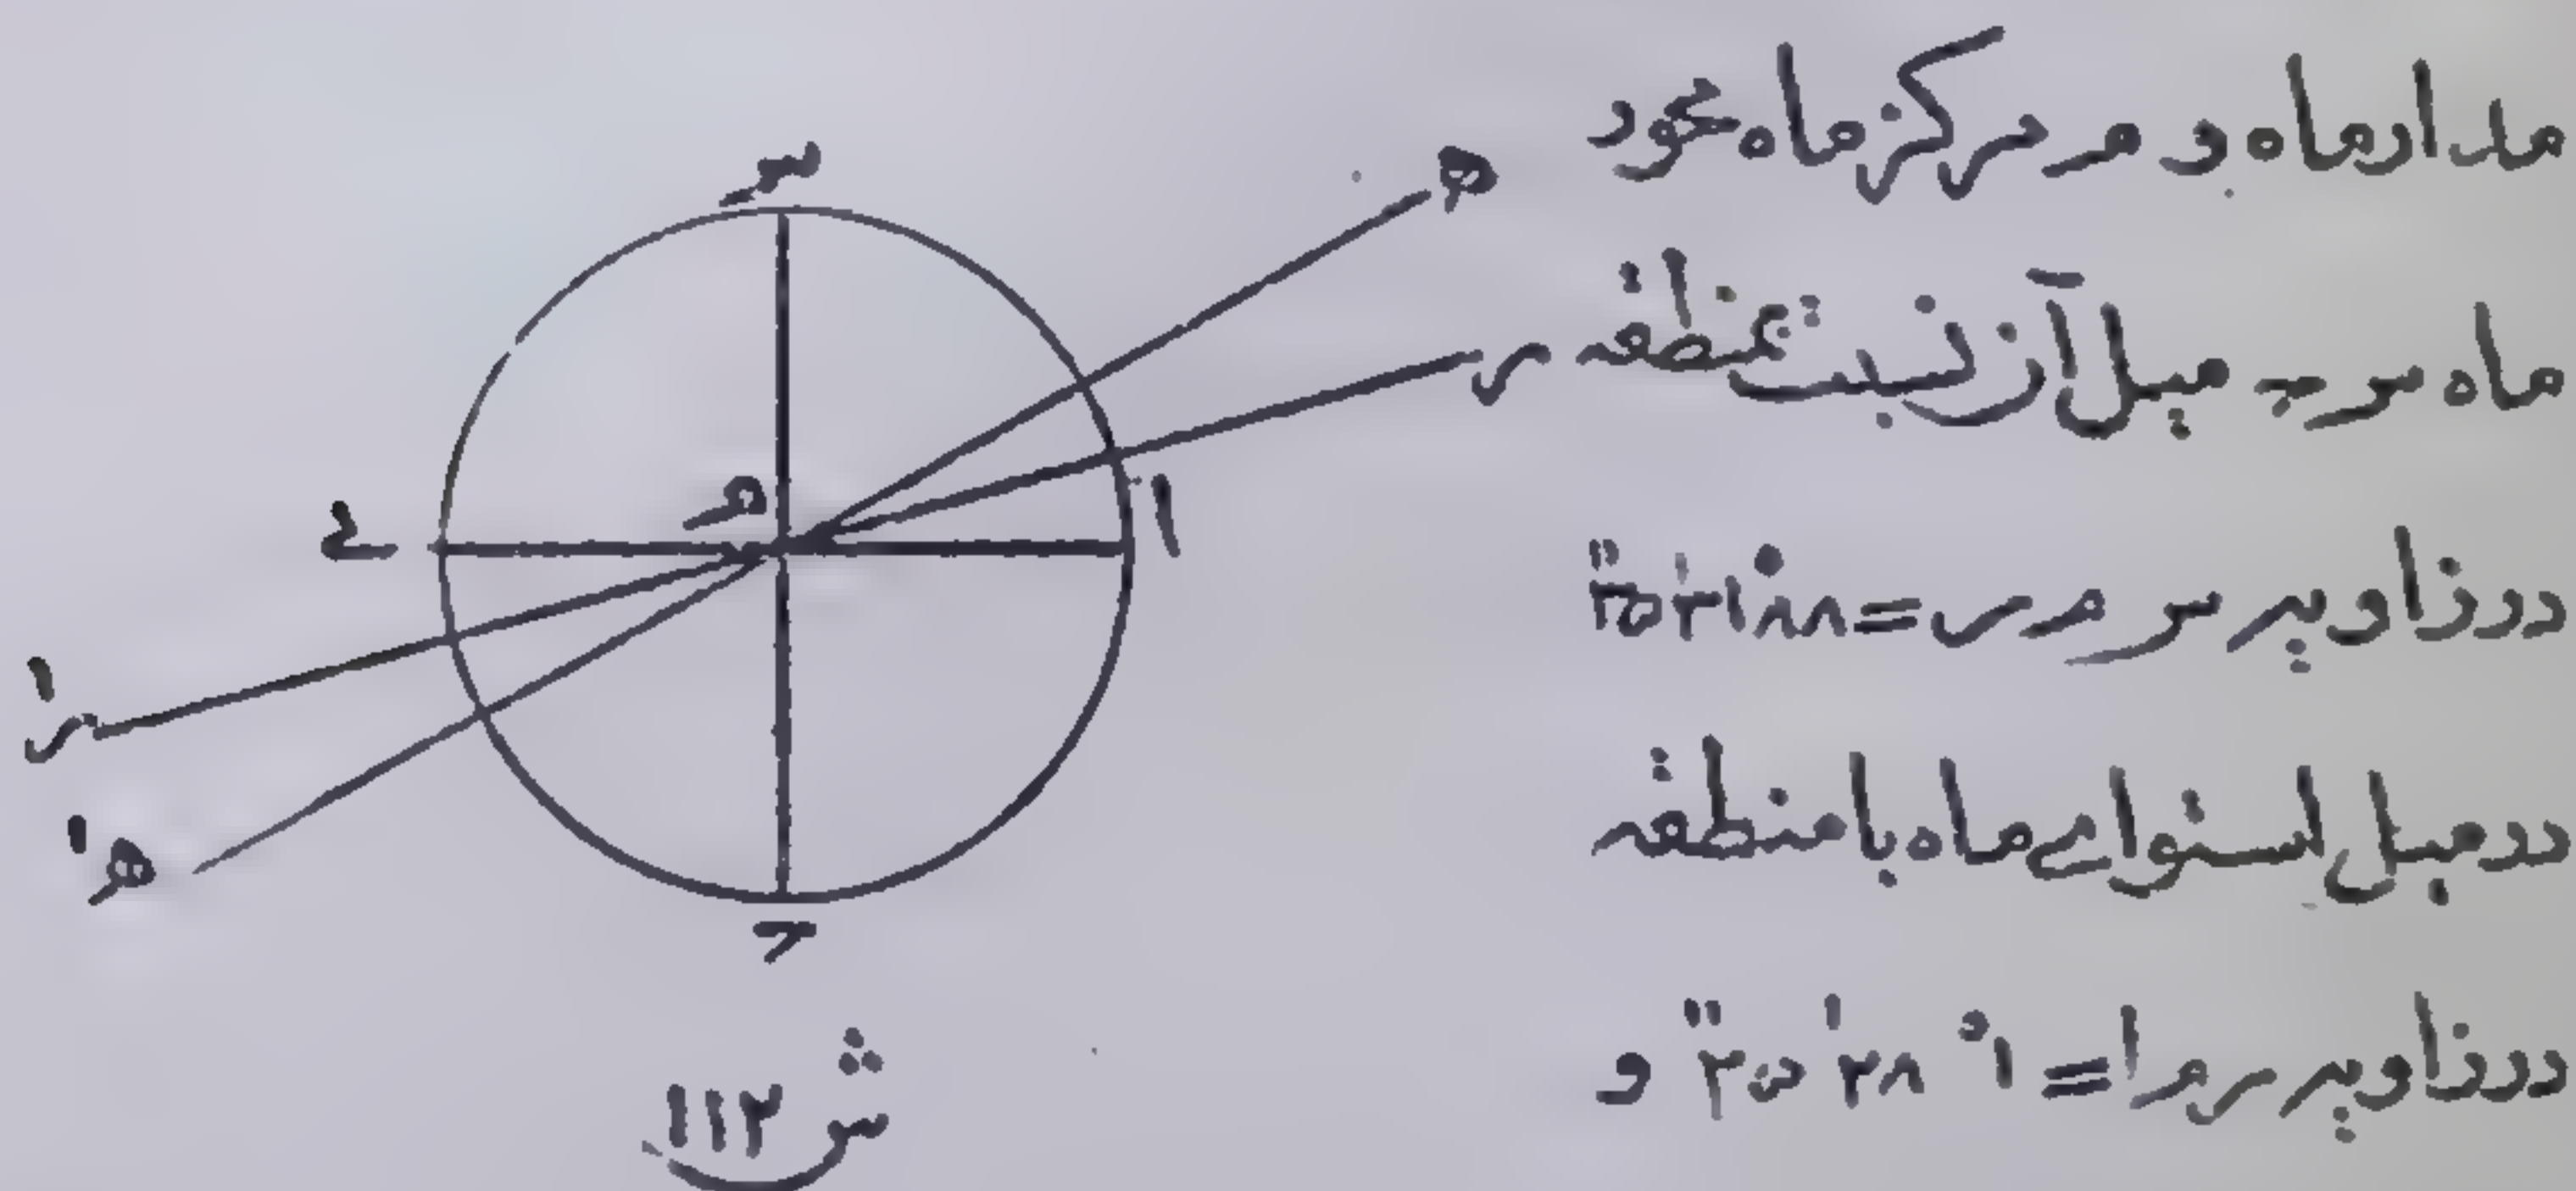 مدار ماه و مر مرکز ماه محود
ماه سرح میل آن نسبت بمنطقه
در زاویه سر مر ر = ۸۸° ۳۱′ ۳۵″
در میل استوای ماه با منطقه
در زاویه ر مر ا = ۱° ۲۸′ ۲۵″ و
سر
ه
ر
ا
مر
ء
ر′
ه′
ح
ش ۱۱۲